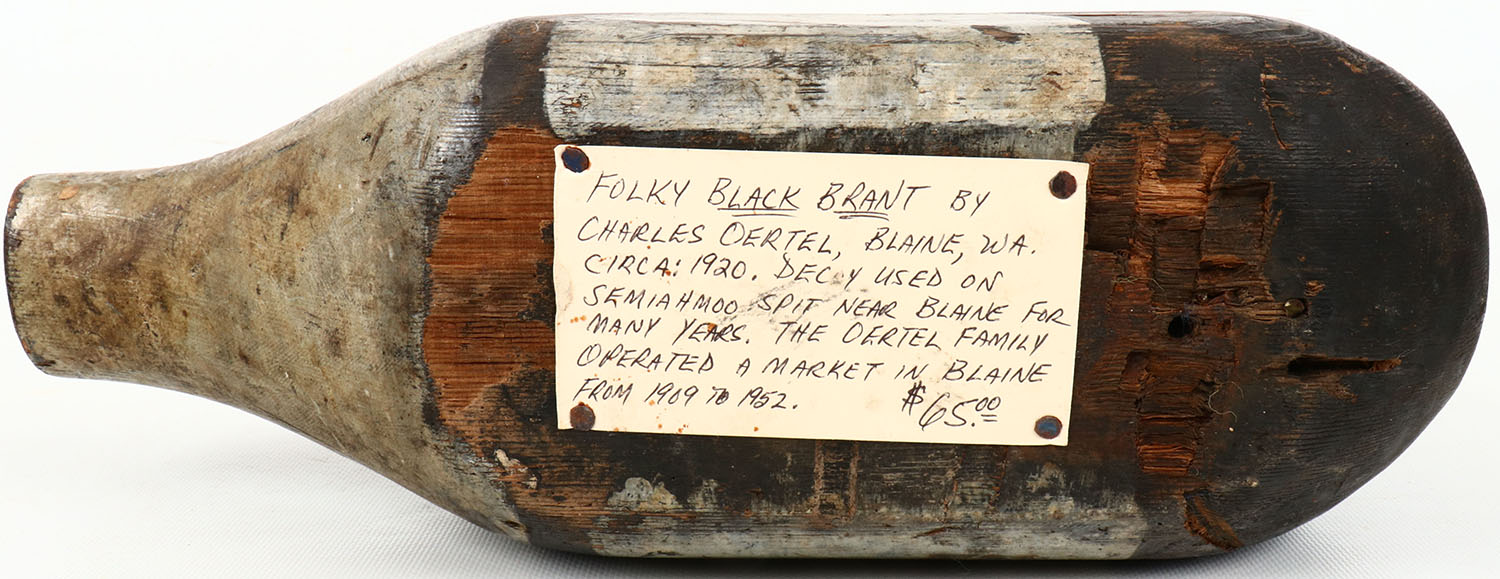 FOLKY BLACK BRANT BY
CHARLES OERTEL, BLAINE, WA.
CIRCA: 1920. DECOY USED ON
SEMIAHMOO SPIT NEAR BLAINE FOR
MANY YEARS. THE OERTEL FAMILY
OPERATED A MARKET IN BLAINE
FROM 1909 TO 1952. $65.00